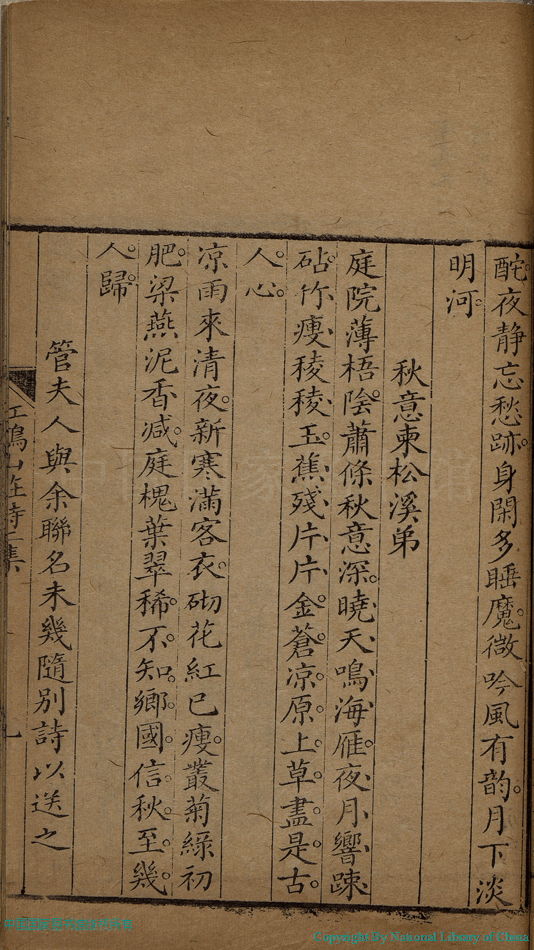 酡夜静忘愁跡身閑多睡魔微吟風有韵月下淡
明河
秋意柬松溪弟
庭院薄梧陰蕭條秋意深曉天鳴海雁夜月響踈
砧竹瘦稜稜玉蕉殘片片金蒼凉原上草盡是古
人心
凉雨來清夜新寒滿客衣砌花紅已瘦叢菊綠初
肥梁燕泥香减庭槐葉翠稀不知鄉國信秋至幾
人歸
管夫人與余聯名未幾隨別詩以送之
Copyright By National Library of China